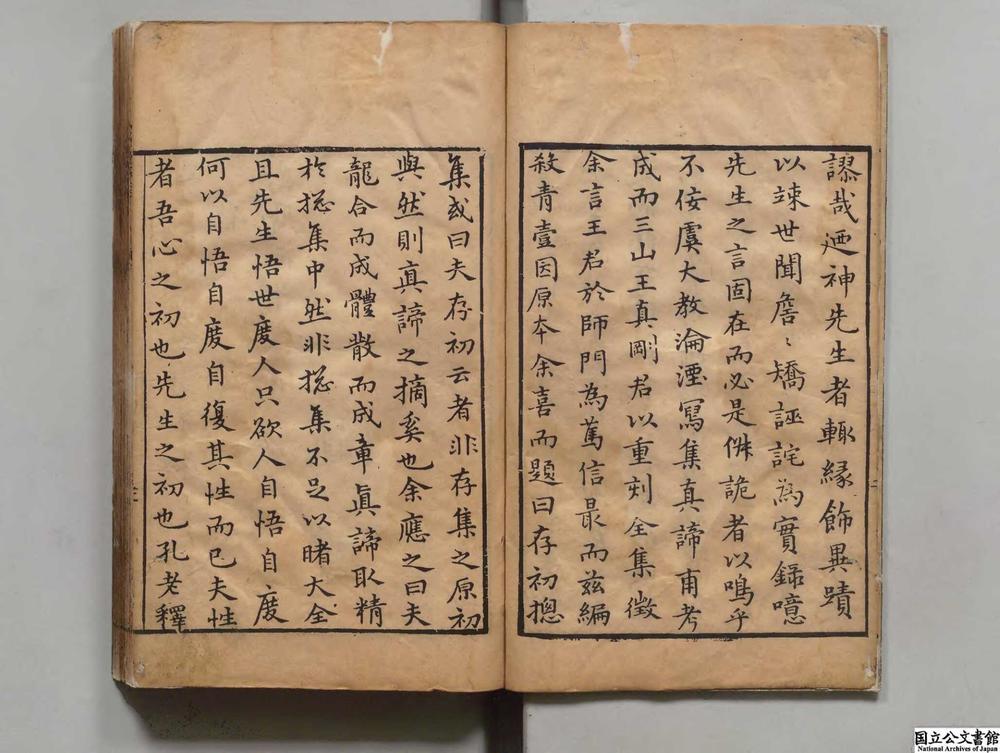 謬哉迺神先生者輙緣飾異蹟
以竦世聞詹〻矯誣詫為實錄噫
先生之言固在而必是俶詭者以鳴乎
不佞虞大教淪湮冩集真諦甫考
成而三山王真剛君以重刻全集徵
余言王君於師門為篤信最而茲編
殺青壹因原本余喜而題曰存初摠
集或曰夫存初云者非存集之原初
與然則真諦之摘奚也余應之曰夫
龍合而成體散而成章真諦取精
於摠集中然非摠集不足以睹大全
且先生悟世度人只欲人自悟自度
何以自悟自度自復其性而已夫性
者吾心之初也先生之初也孔老釋
国立公文書館
National Archives of Japan